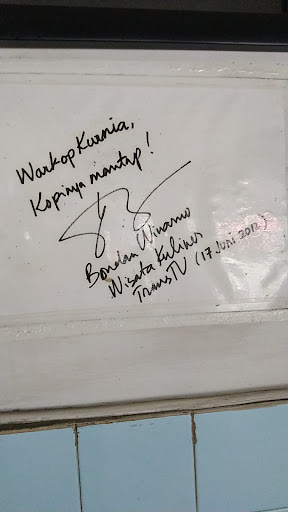 Warkop Kurnia,
Kopinya mantap!
Bondan Winarno
Wisata Kuliner
Trans TV (17 Juni 2012)